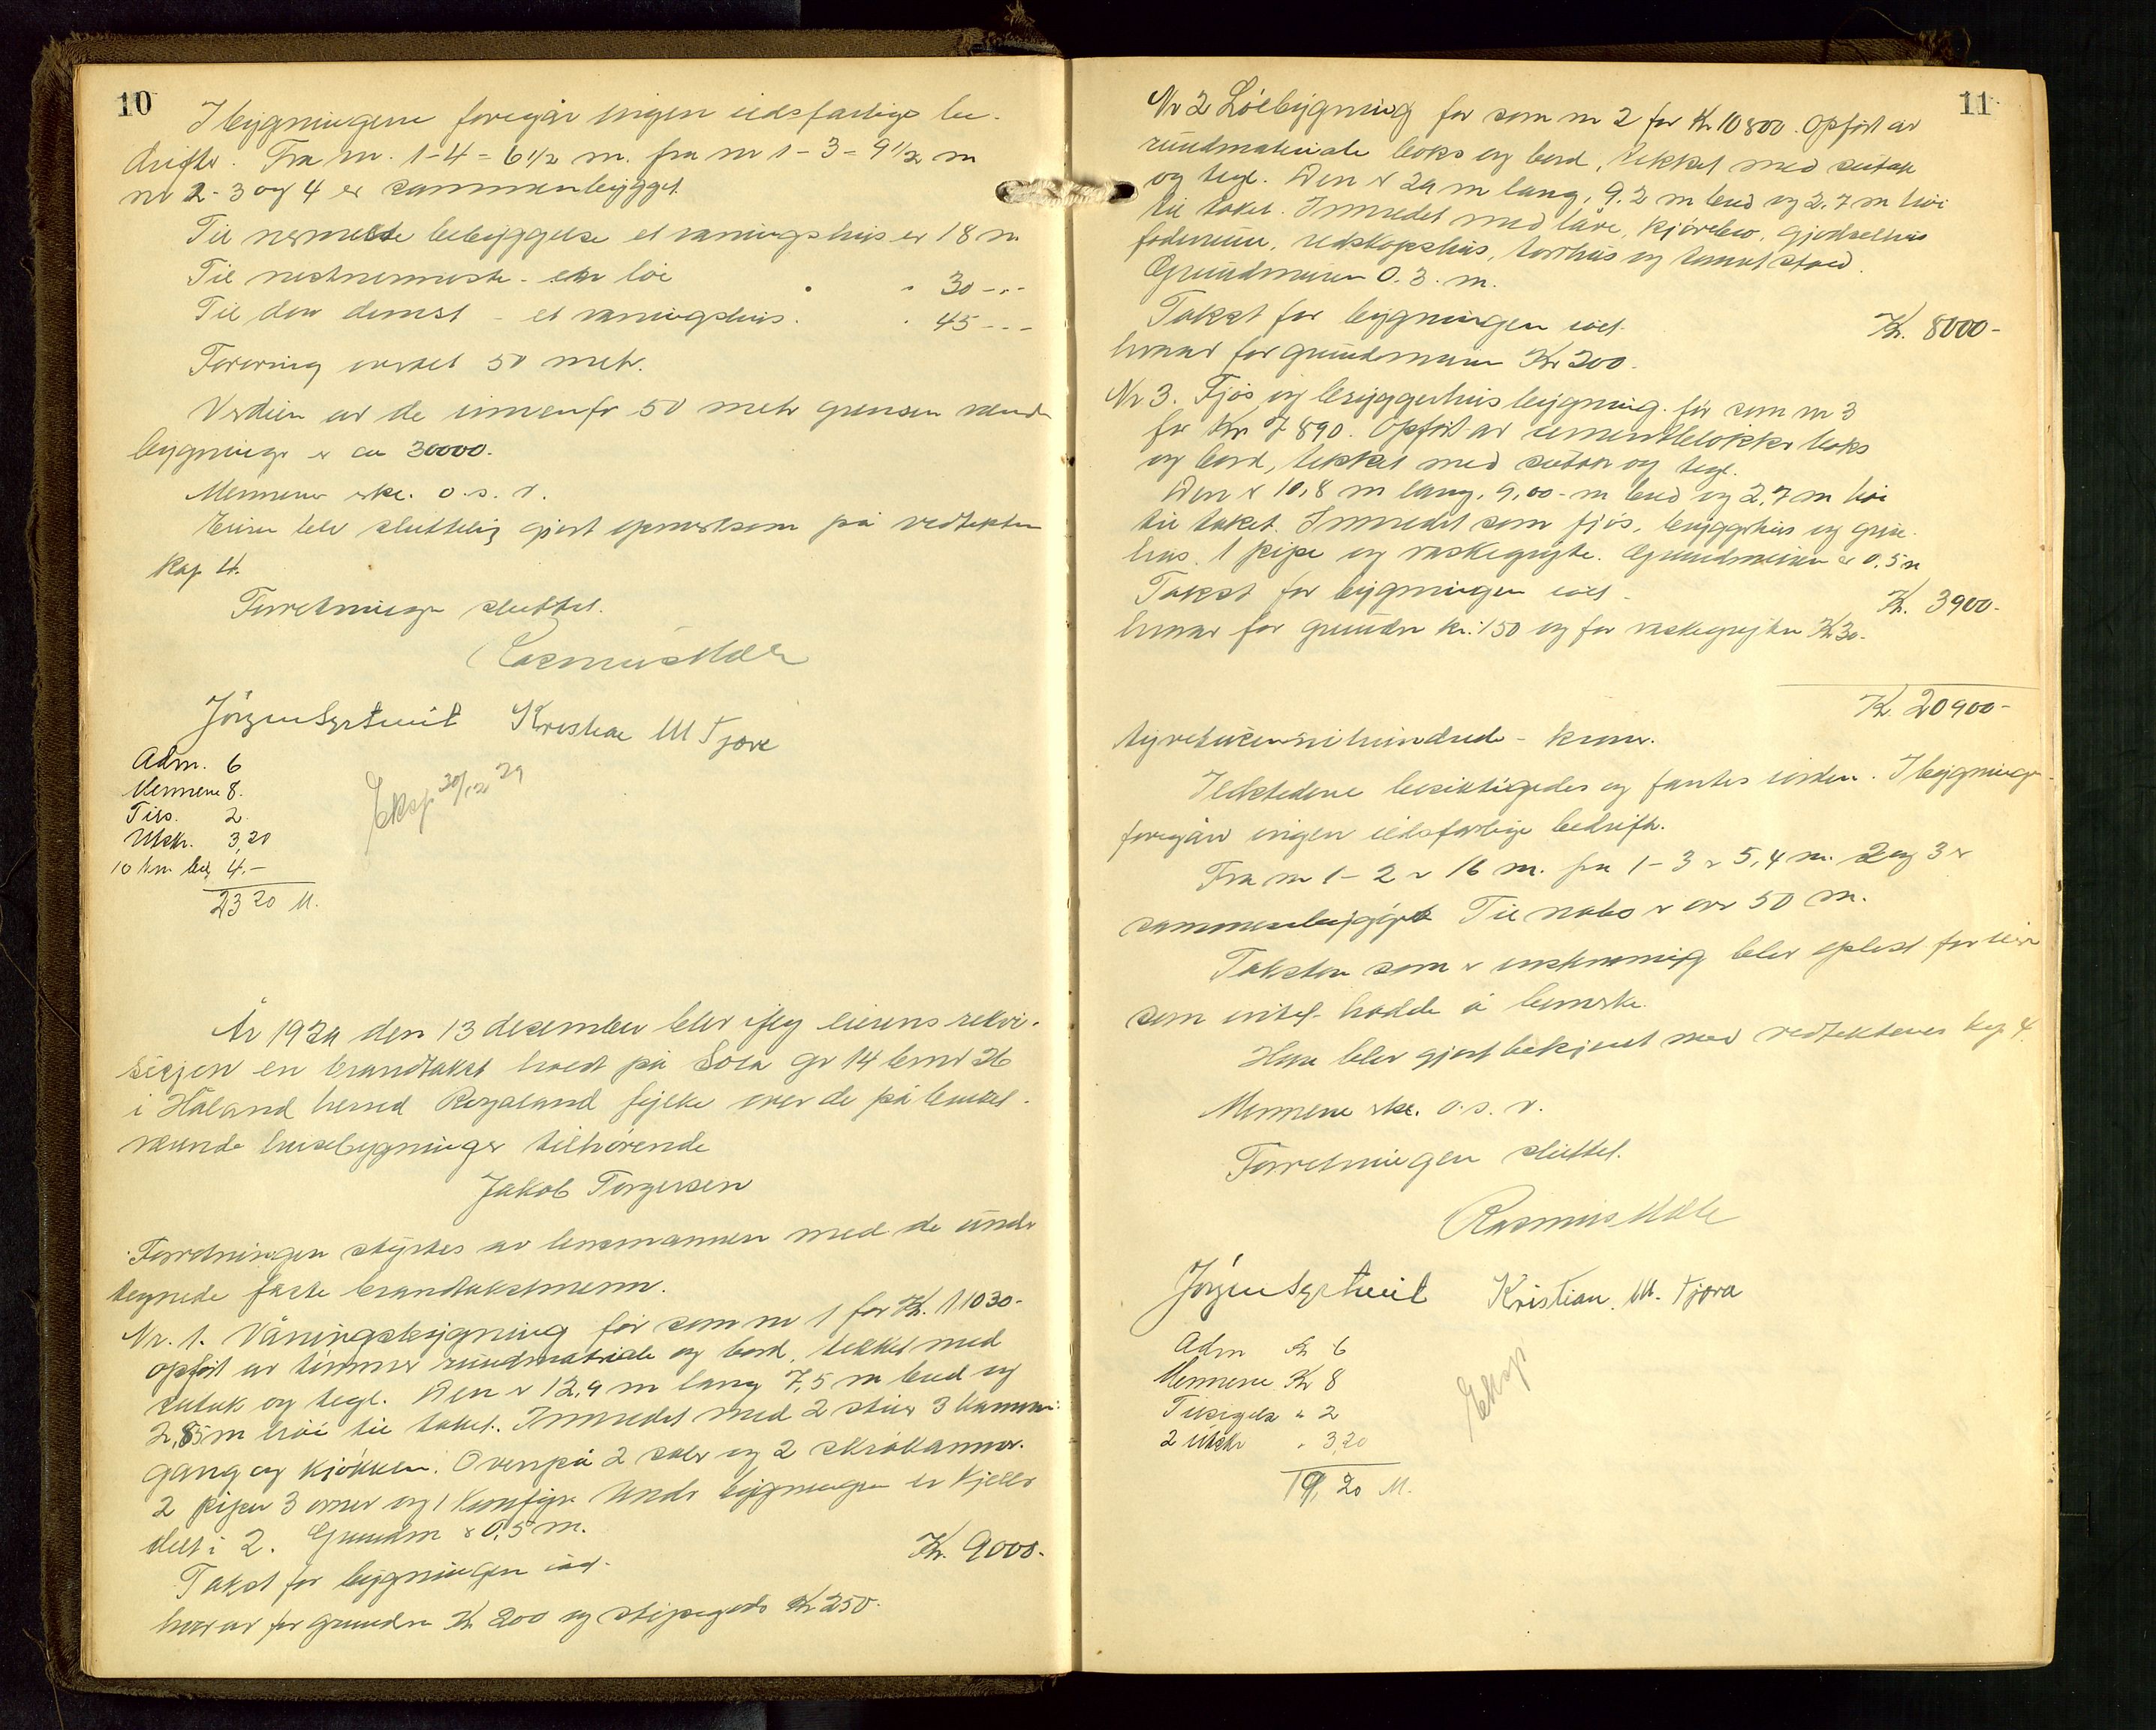 10
I bygningene foregår ingen ildsfarlige be-
drifter. Fra nr. 1-4 = 6 1/2 m. fra nr 1-3 = 9 1/2 m
nr 2-3 og 4 er sammenbygget.
Til nermeste bebyggelse et vaningshus er 18 m
Til nestnermeste - en löe " 30 -"-
Til den dernest - et vaningshus. " 45 - - -
Forøvrig ønsket 50 metr.
Verdien av de innenfor 50 metr grensen værende
bygninger er ca 30000.
Mennene erkl. o.s.v.
Eieren blev sluttelig gjort opmerksom på vedtekten
kap 4.
Forretningen sluttet.
Rasmus Mæle
Jörgen Syrtveit Kristian M Tjora
Adm. 6
Mennene 8.
Tils. 2.
Utskr. 3,20
10 km bil 4.-
23 20 M.
Eksp 30/12 29
År 1929 den 13 desember blev iflg eierens rekvi-
sisjon en brandtakst holdt på Sola gr 14 bnr 26
i Håland herred Rogaland fylke over de på bruket
værende husebygninger tilhörende
Jakob Torgersen
Forretningen styrtes av lensmannen med de under
tegnede faste brandtakstmenn.
Nr. 1. Våningsbygning för som nr 1 for Kr. 11030-
opfört av timmer rundmateriale og bord, tekket med
sutak og tegl. Den er 12,9 m lang 7,5 m bred og
2,85 m höi til taket. Innredet med 2 stuer 3 kammer
gang og kjökken. Ovenpå 2 saler og 2 skråkammer.
2 piper 3 ovner og 1 komfyr. Under bygningen er kjeller
delt i 2. Grundm er 0,5 m.
Takst for bygningen inkl. Kr. 9000-
hvorav for grundm Kr 200 og støpegods Kr 250.
11
Nr 2 Löebygning för som nr 2 for Kr 10800. Opfört av
rundmateriale boks og bord, tekket med sutak
og tegl. Den er 29 m lang, 9.2 m bred og 2.7 m höi
til taket. Innredet med låve, kjörebro, gjødselhus
foderrum, redskapshus, torvhus og tomt stad.
Grundmuren 0.3. m.
Takst for bygningen inkl. Kr. 8000-
hvorav for grundmuren Kr 200.
Nr 3. Fjös og bryggerhusbygning för som nr 3
for Kr 7890. Opfört av sementblokker boks
og bord, tekket med sutak og tegl.
Den er 10,8 m lang, 9,00 m bred og 2,7 m höi
til taket. Innredet som fjös, bryggerhus og grise-
hus. 1 pipe og vaskegryte. Grundmuren er 0,5 m
Takst for bygningen inkl. Kr. 3900-
hvorav for grundm kr. 150 og for vaskegryten Kr 30.
Kr. 20900-
tyvetusennihundrede - kroner.
Ildstedene besiktigedes og fantes iorden. I bygningene
foregår ingen ildsfarlige bedrifter.
Fra nr 1-2 er 16 m. fra 1-3 er 5,4 m. 2 og 3 er
sammenbygget. Til nabo er over 50 m.
Taksten som er enstemmig blev oplest for eieren
som intet hadde å bemerke.
Han blev gjort bekjent med vedtektenes kap 4.
Mennene erkl. o.s.v.
Forretningen sluttet.
Rasmus Mæle
Jörgen Syrtveit Kristian M. Tjora
Adm Kr 6
Mennene Kr 8
Tilsigelse " 2
2 Utskr " 3,20
19,20 M.
Eksp